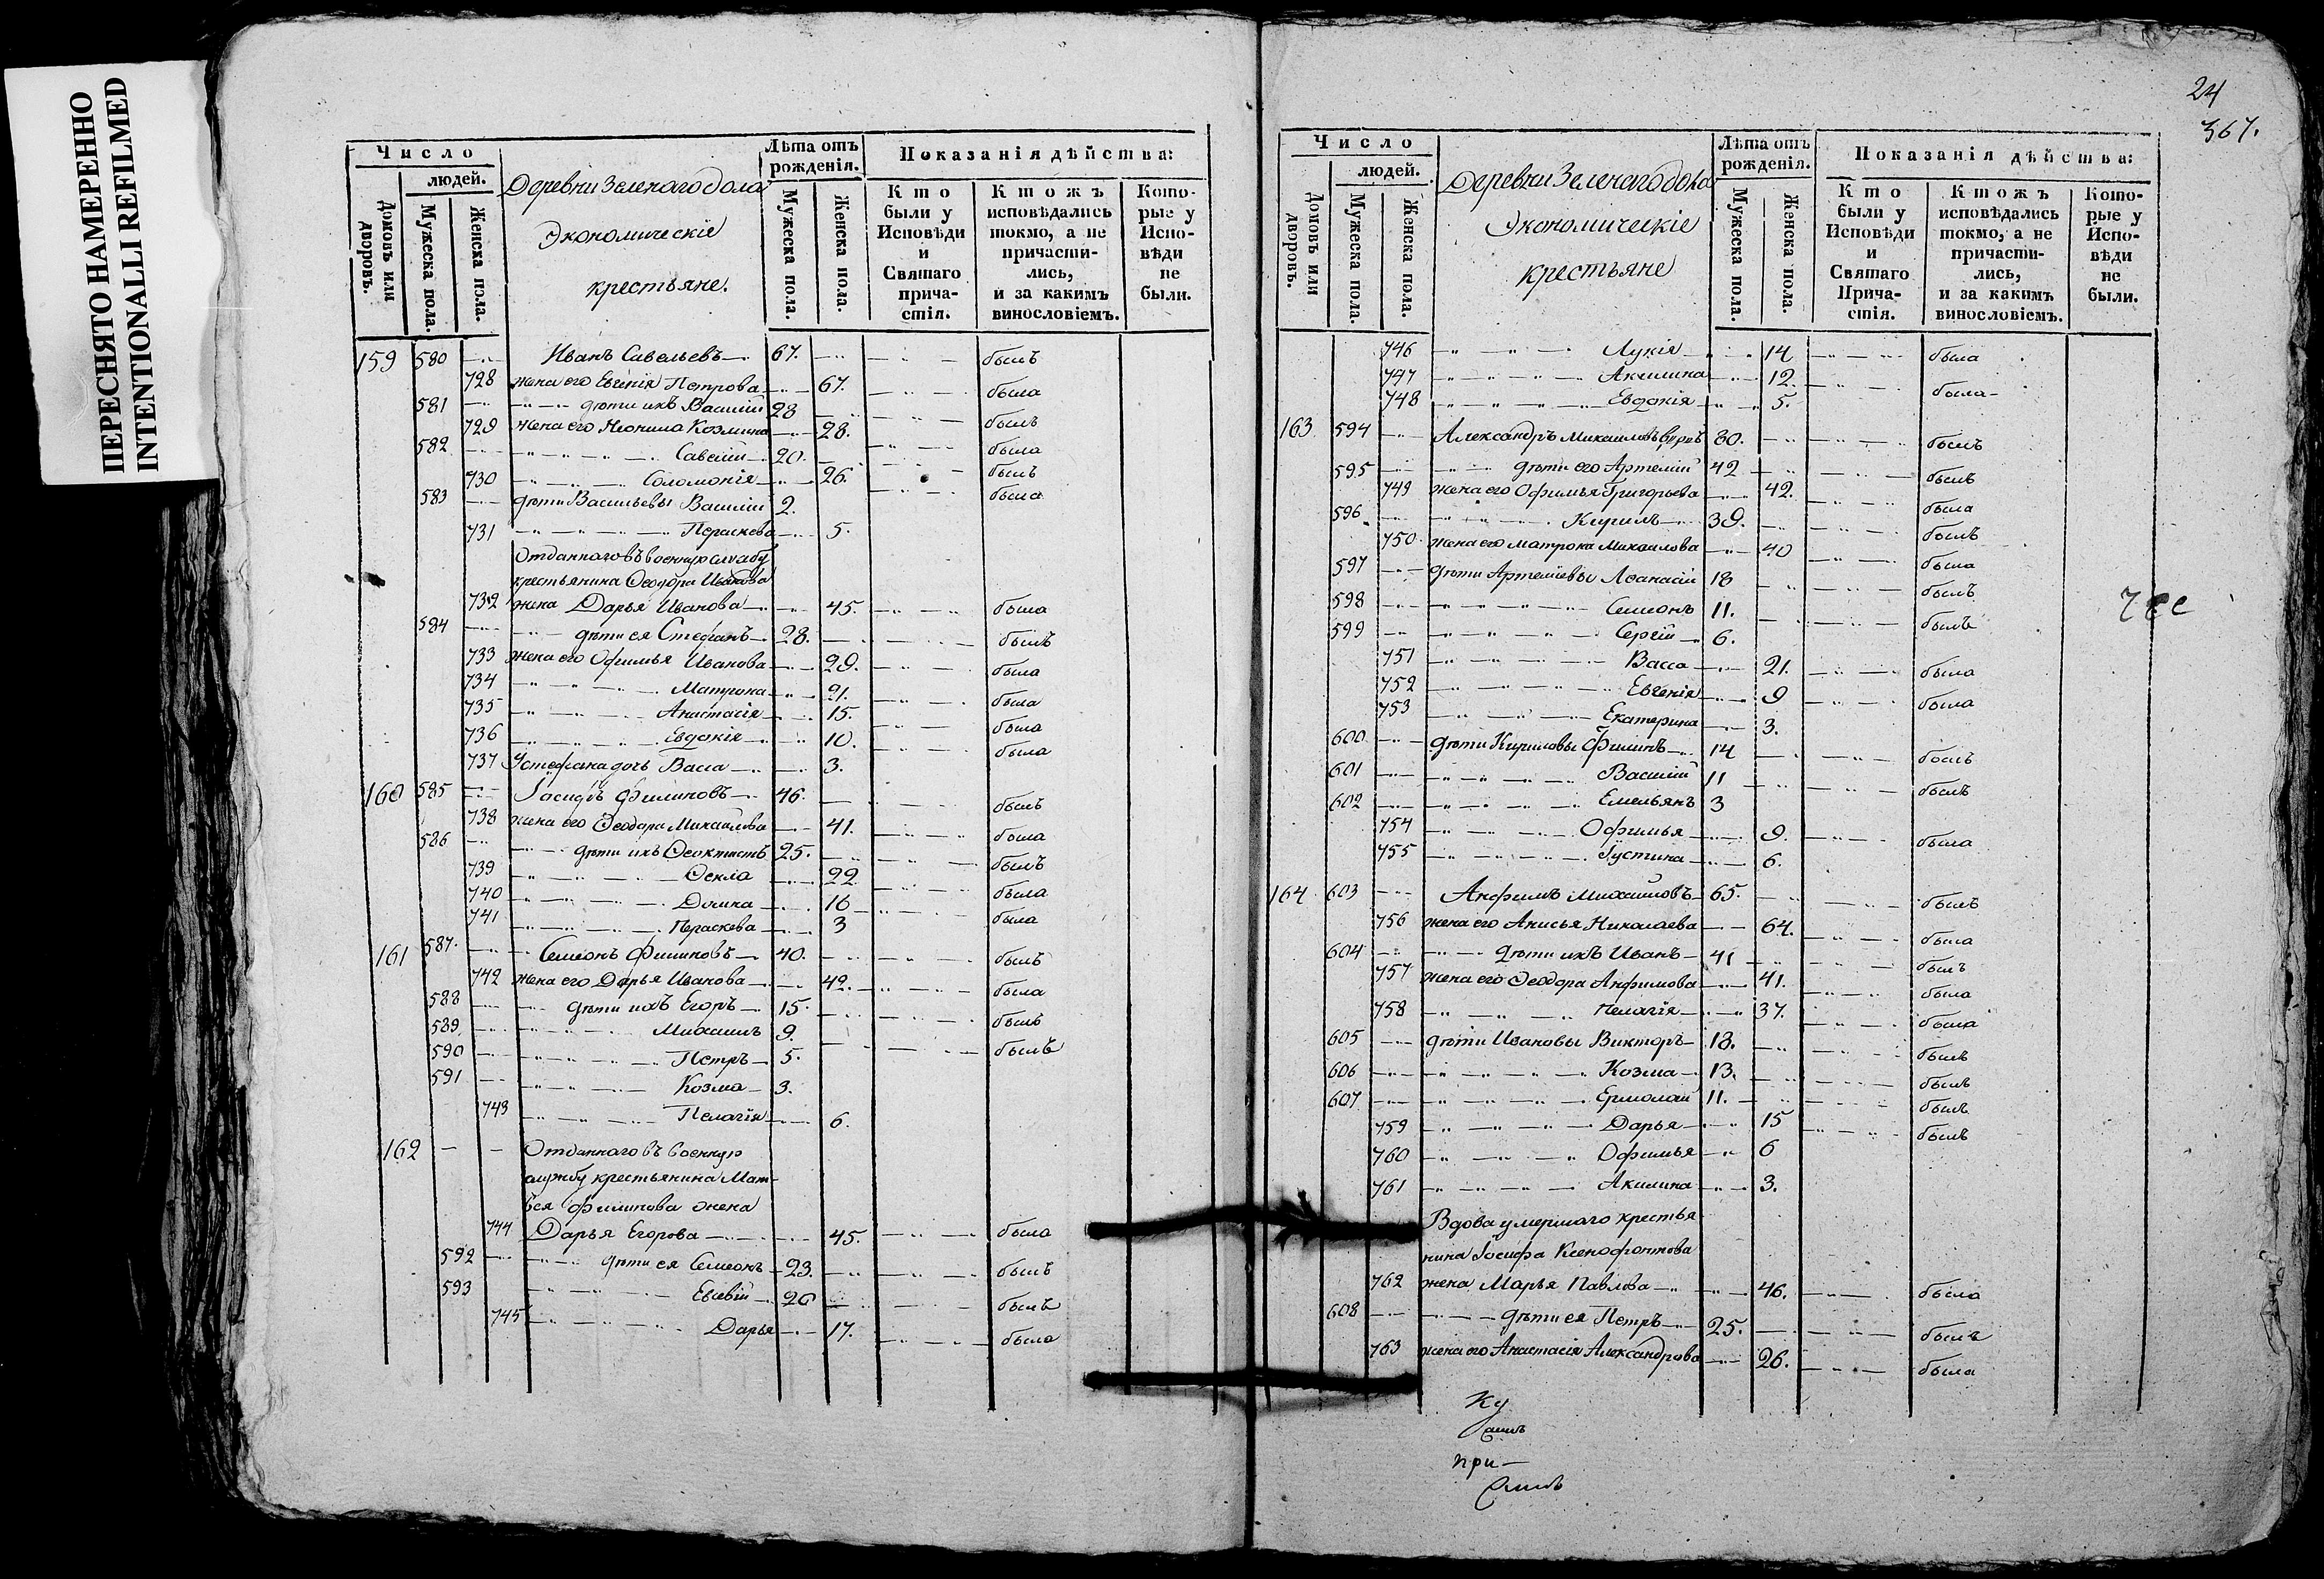 ПЕРЕСНЯТО НАМЕРЕННО
INTENTIONALLI REFILMED
Число
людей.
Домовъ или дворовъ.
Мужеска пола.
Женска пола.
Деревни Зеленаго дола
Экономическіе
крестьяне.
Лѣта отъ рожденія.
Мужеска пола.
Женска пола.
Показанія дѣйства:
Кто были у Исповѣди и Святаго причастія.
Ктожъ исповѣдались токмо, а не причастились, и за какимъ винословіемъ.
Которые у Исповѣди не были.
159 580 Иванъ Савельевъ 67. былъ
728 жена его Евгенія Петрова 67. была
581 дѣти ихъ Василій 28 былъ
729 жена его Неонила Козмина 28. была
582 Савелій 20. былъ
730 Соломонія 26. была
583 дѣти Васильевы Василій 2.
731 Параскева 5.
Отданнаго въ военную службу
крестьянина Ѳеодора Иванова
732 жена Дарья Иванова 45. была
584 дѣти ея Стефанъ 28. былъ
733 жена его Офимья Иванова 29. была
734 Матрона 21. была
735 Анастасія 15. была
736 Евдокія 10. была
737 Устефана дочь Васса 3.
160 585 Іосифъ Филиповъ 46. былъ
738 жена его Ѳеодора Михайлова 41. была
586 дѣти ихъ Ѳеоктистъ 25. былъ
739 Ѳекла 22 была
740 Домна 16 была
741 Параскева 3
161 587. Семіонъ Филиповъ 40. былъ
742 жена его Дарья Иванова 42. была
588 дѣти ихъ Егоръ 15. былъ
589. Михаилъ 9. былъ
590 Петръ 5.
591 Козма 3.
743 Пелагія 6.
162 Отданнаго въ военную
службу крестьянина Мат-
вея Филипова жена
744 Дарья Егорова 45. была
592 дѣти ея Семіонъ 23. былъ
593 Евсевій 20 былъ
745 Дарья 17. была
24
367.
Число
людей.
Домовъ или дворовъ.
Мужеска пола.
Женска пола.
Деревни Зеленаго дола
Экономическіе
крестьяне
Лѣта отъ рожденія.
Мужеска пола.
Женска пола.
Показанія дѣйства:
Кто были у Исповѣди и Святаго Причастія.
Ктожъ исповѣдались токмо, а не причастились, и за какимъ винословіемъ.
Которые у Исповѣди не были.
746 Лукія 14 была
747 Акилина 12. была
748 Евдокія 5.
163 594 Александръ Михаиловъ 80. былъ
595 дѣти его Артемій 42 былъ
749 жена его Офимья Григорьева 42. была
596 Кирилъ 39. былъ
750 жена его Матрона Михаилова 40 была
597 дѣти Артеміевы Аѳанасій 18 былъ
598 Семіонъ 11. былъ
599 Сергій 6.
751 Васса 21. была
752 Евгенія 9 была
753 Екатерина 3.
600 дѣти Кириловы Филипъ 14 былъ
601 Василій 11 былъ
602 Емельянъ 3
754 Офимья 9. была
755 Густина 6.
164 603 Анфимъ Михаиловъ 65. былъ
756 жена его Анисья Николаева 64. была
604 дѣти ихъ Иванъ 41 былъ
757 жена его Ѳеодора Анфимова 41. была
758 Пелагія 37. была
605 дѣти Ивановы Викторъ 18. былъ
606 Козма 13. былъ
607 Ермолай 11. былъ
759 Дарья 15 былъ
760 Офимья 6
761 Акилина 3.
Вдова умершаго крестья-
нина Іосифа Ксенофонтова
762 жена Марья Павлова 46. была
608 дѣти ея Петръ 25. былъ
763 жена его Анастасія Александрова 26. была
при-